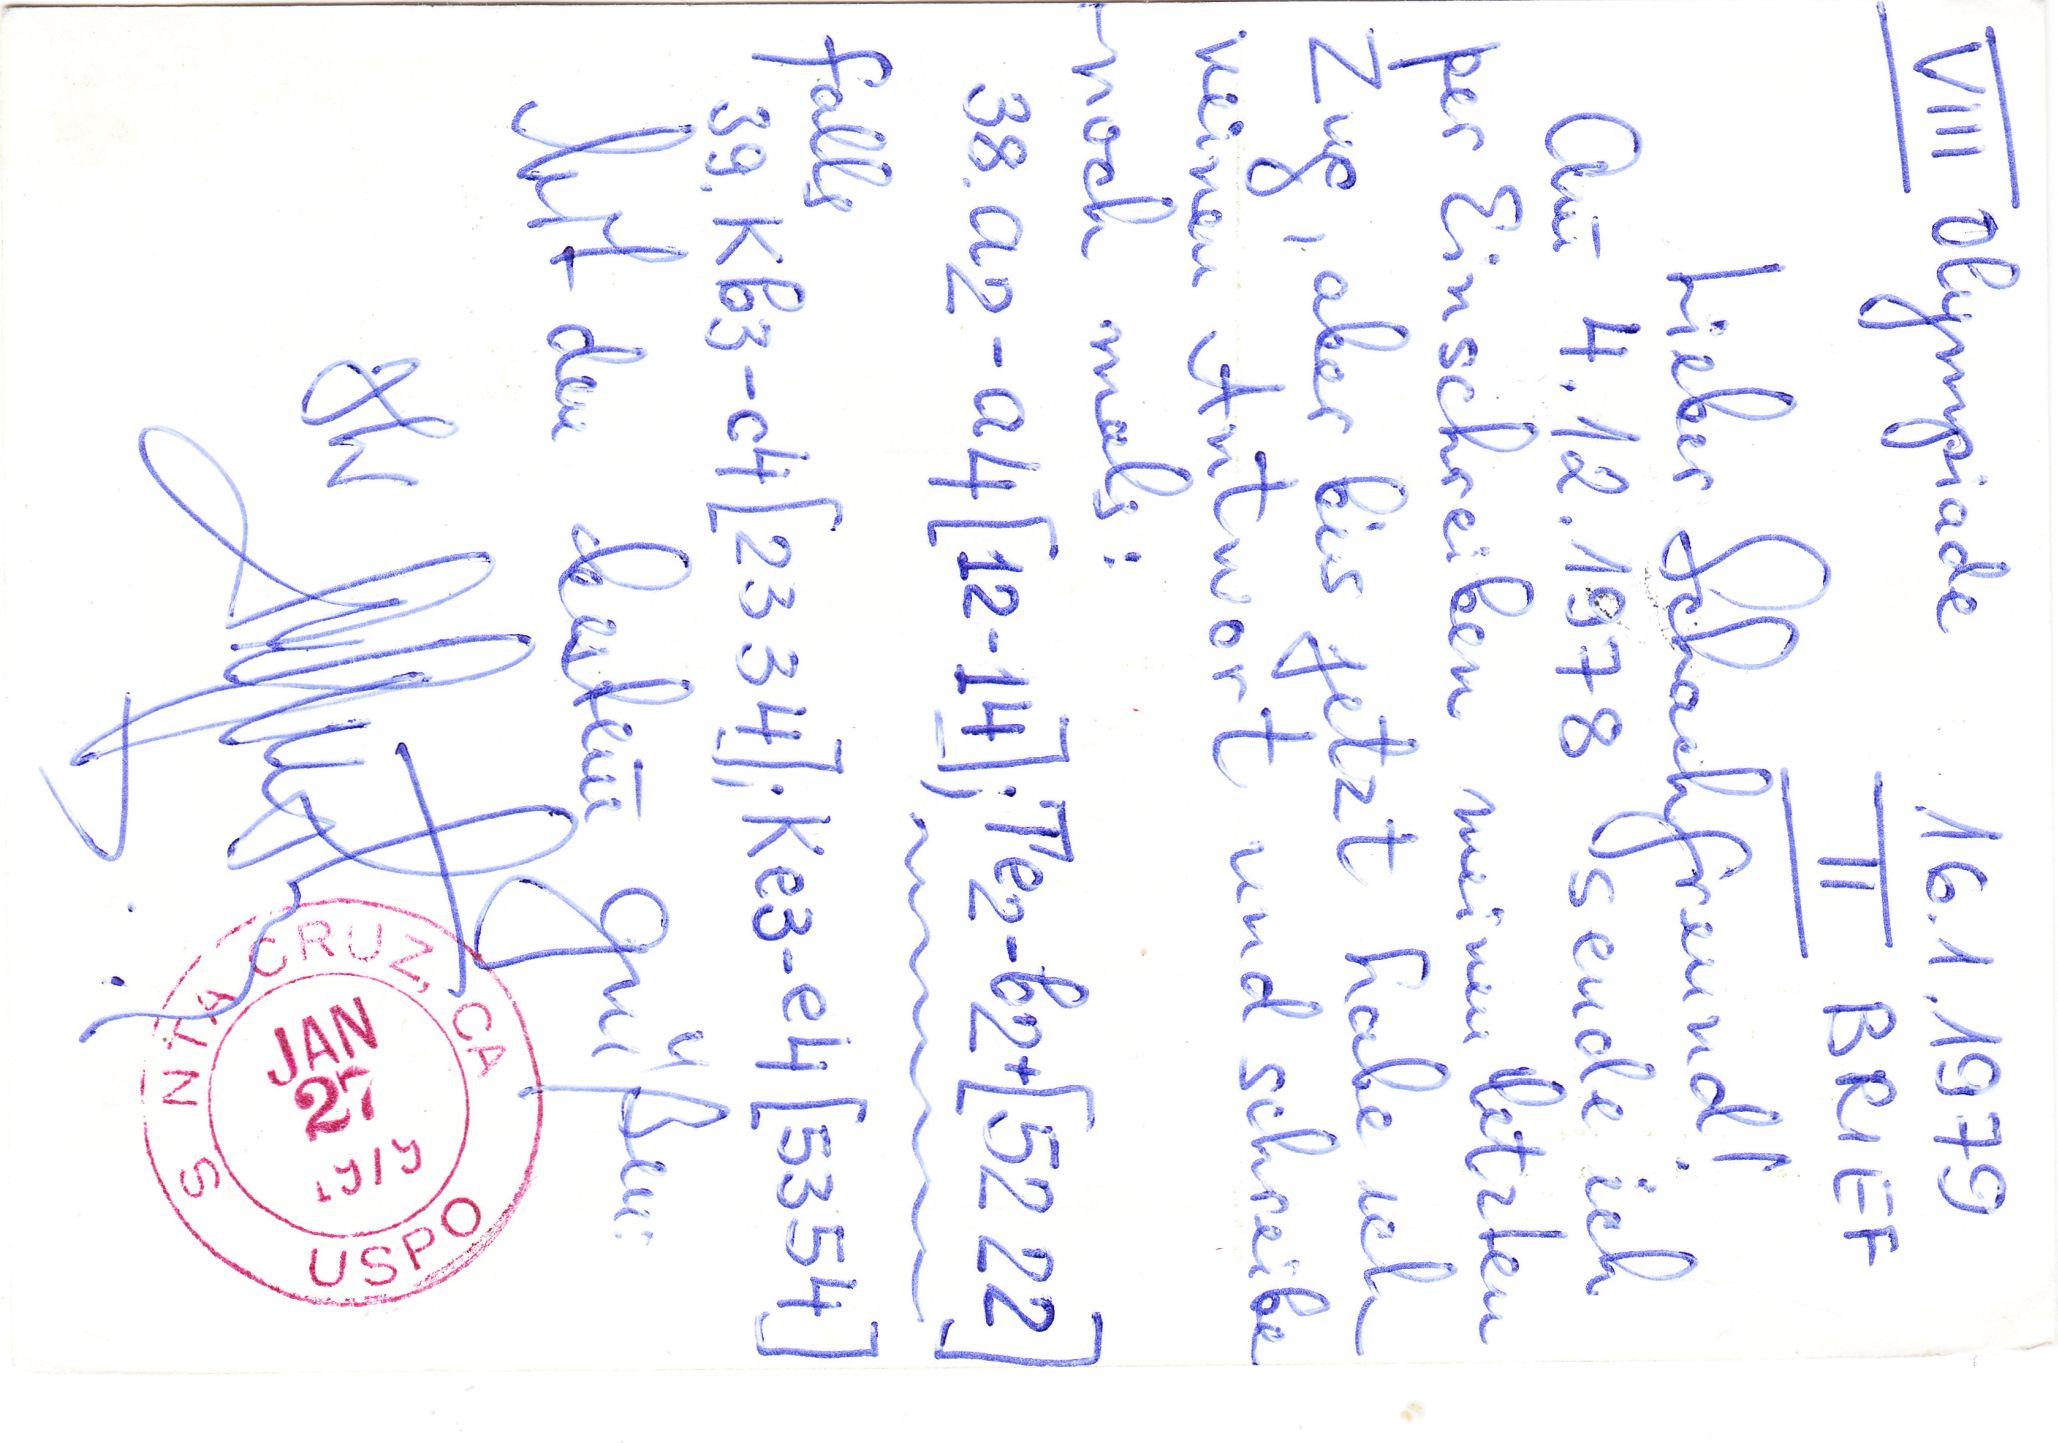 VIII Olympiade 16.1.1979
II BRIEF
Lieber Schachfreund!
Am 4.12.1978 sende ich
per Einschreiben meinen letzten
Zug, aber bis jetzt habe ich
keinen Antwort und schreibe
noch mals:
38. a2-a4 [12-14]; Te2-b2+ [52 22]
falls
39. Kb3-c4 [23 34]; Ke3-e4 [53 54]
Mit den besten Grüßen:
Ihr
SANTA CRUZ, CA
JAN
27
1979
USPO